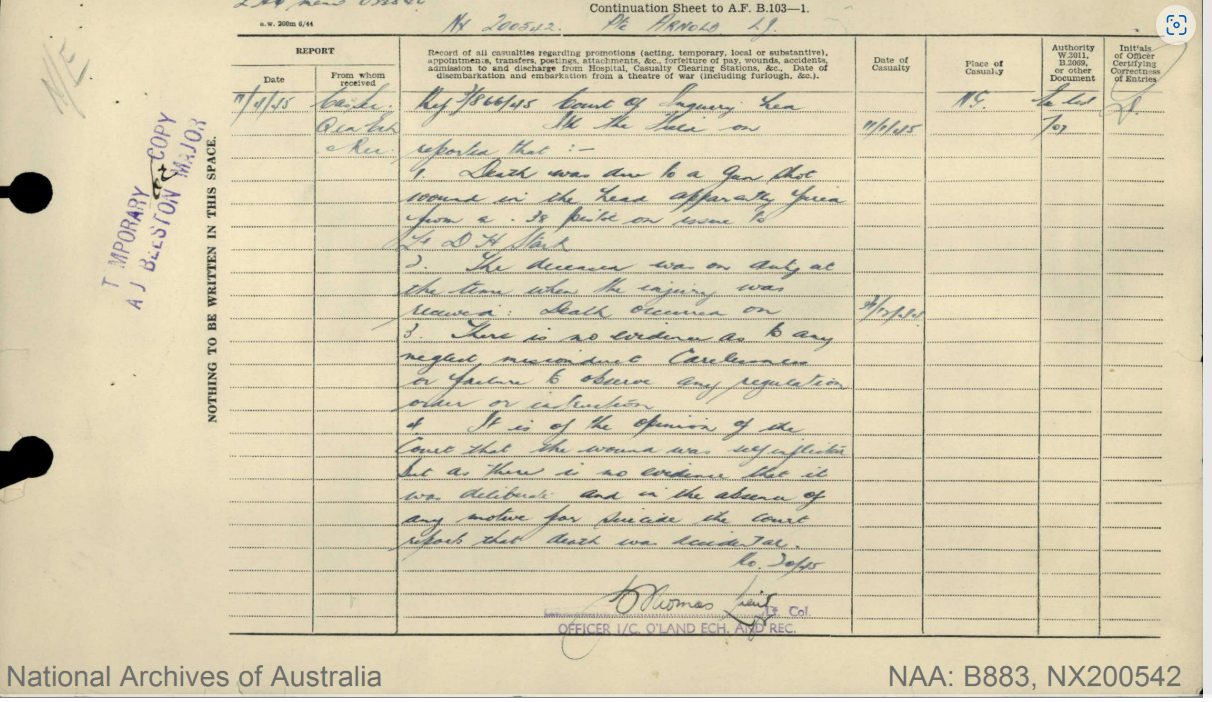 Continuation Sheet to A.F. B.103—1.
a.w. 200m 6/44
NX 200542. Pte ARNOLD L.J.
REPORT
Date
From whom received
Record of all casualties regarding promotions (acting, temporary, local or substantive),
appointments, transfers, postings, attachments, &c., forfeiture of pay, wounds, accidents,
admission to and discharge from Hospital, Casualty Clearing Stations, &c., Date of
disembarkation and embarkation from a theatre of war (including furlough, &c.).
Date of Casualty
Place of Casualty
Authority W.3011, B.2069, or other Document
Init'als of Officer Certifying Correctness of Entries
N/E
Court Of Inquiry
In the Field on
reported that :-
1. Death was due to a Gun Shot
wound in the head apparently fired
from a .38 pistol on issue to
Lt D H Stark
2. The deceased was on duty at
the time when the injury was
received: Death occurred on
3. There is no evidence as to any
neglect misconduct Carelessness
or failure to observe any regulation
order or instruction
4. It is of the opinion of the
Court that the wound was self inflicted
but as there is no evidence that it
was deliberate and in the absence of
any motive for suicide the court
reports that death was accidental.
Thomas Lieut
Lt. Col.
OFFICER I/C. O'LAND ECH. AND REC.
NOTHING TO BE WRITTEN IN THIS SPACE.
T MPORARY COPY
A J BEESTON MAJOR
National Archives of Australia
NAA: B883, NX200542